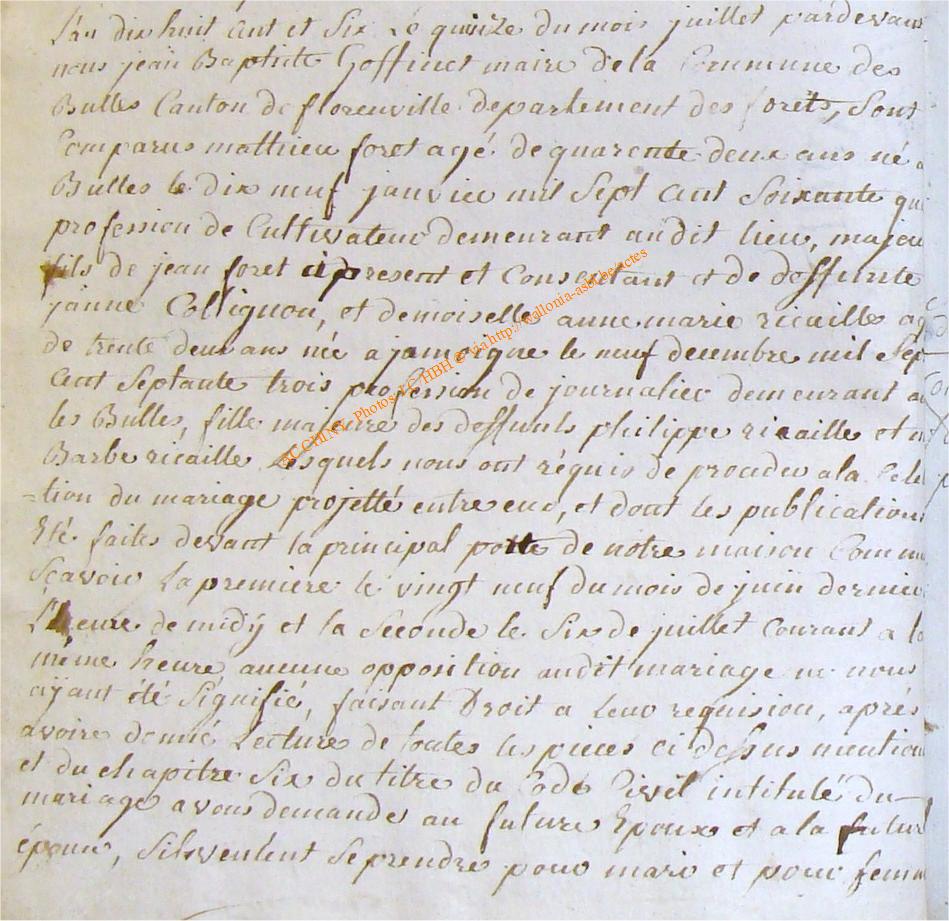 L'an dix huit cent et Six Le quinze du mois juillet pardevant
nous jean Baptiste Goffinet maire de la Commune des
Bulles Canton de florenville departement des forêts, Sont
Comparus mathieu foret agé de quarente deux ans né a
Bulles le dix neuf janvier mil Sept cent Soixante qu
profession de Cultivateur demeurant audit lieu, majeu
fils de jean foret ci present et Consentant et de deffunte
janne Collignon, et demoiselle anne marie ricaille ag
de trente deux ans née a jamoigne le neuf decembre mil Sep
cent Septante trois profession de journalier demeurant au
les Bulles, fille majeure des deffunts philippe ricaille et
Barbe ricaille Lesquels nous ont réquis de proceder a la Celeb
=tion du mariage projetté entre eux, et dont les publications
Eté faites devant la principal porte de notre maison Commu
Sçavoir La premiere le vingt neuf du mois de juin dernier
L'heure de midÿ et la Seconde le Six de juillet Courant a la
même heure aucune opposition audit mariage ne nous
aÿant été Signifié, faisant Droit a leur requision, aprés
avoire donné Lecture de toutes les pieces ci dessus mention
et du chapitre Six du titre du Code Civil intitulé du
mariage avons demandé au future Epoux et a la futur
épouse, Sils veulent Se prendre pour mari et pour femm
ACCHINY Photos LC HBH © via http://wallonia-asbl.be/actes